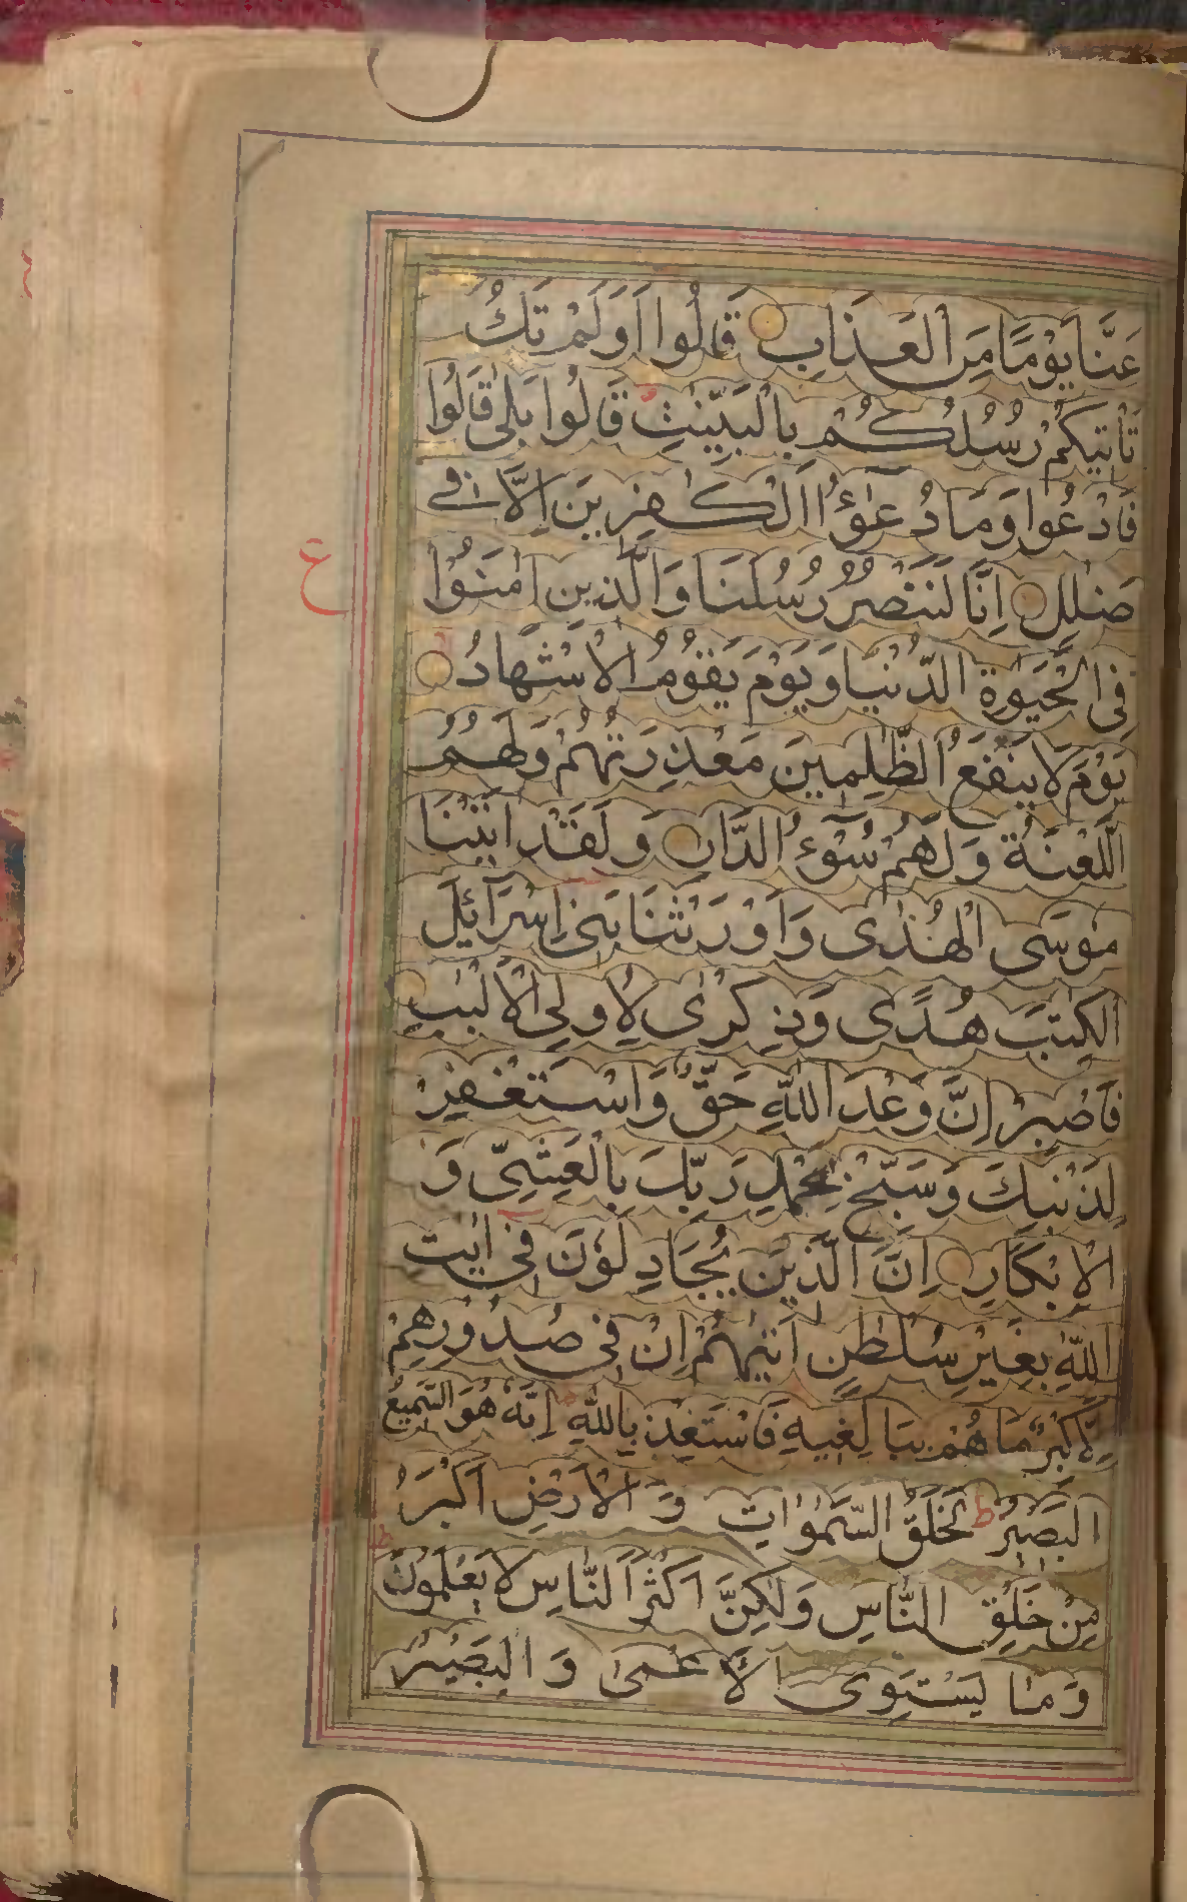 عَنَّا يَوْمًا مِنَ الْعَذَابِ قَالُوا اَوَلَمْ تَكُ
تَاْتِيكُمْ رُسُلُكُمْ بِالْبَيِّنٰتِ قَالُوا بَلٰى قَالُوا
فَادْعُوا وَمَا دُعٰٓؤُا الْكٰفِرِينَ اِلَّا فِي
ضَلٰلٍ اِنَّا لَنَنْصُرُ رُسُلَنَا وَالَّذِينَ اٰمَنُوْا
ع
فِي الْحَيٰوةِ الدُّنْيَا وَيَوْمَ يَقُوْمُ الْاَشْهَادُ
يَوْمَ لَا يَنْفَعُ الظّٰلِمِينَ مَعْذِرَتُهُمْ وَلَهُمُ
اللَّعْنَةُ وَلَهُمْ سُوْٓءُ الدَّارِ وَلَقَدْ اٰتَيْنَا
مُوسَى الْهُدٰى وَاَوْرَثْنَا بَنِي اِسْرَآئِلَ
الْكِتٰبَ هُدًى وَذِكْرٰى لِاُولِي الْاَلْبٰبِ
فَاصْبِرْ اِنَّ وَعْدَ اللّٰهِ حَقٌّ وَاسْتَغْفِرْ
لِذَنْبِكَ وَسَبِّحْ بِحَمْدِ رَبِّكَ بِالْعَشِيِّ وَ
الْاِبْكَارِ اِنَّ الَّذِينَ يُجَادِلُوْنَ فِي اٰيٰتِ
اللّٰهِ بِغَيْرِ سُلْطٰنٍ اَتٰيهُمْ اِنْ فِي صُدُوْرِهِمْ
اِلَّا كِبْرٌ مَا هُمْ بِبَالِغِيهِ فَاسْتَعِذْ بِاللّٰهِ اِنَّهٗ هُوَ السَّمِيعُ
الْبَصِيْرُ ط لَخَلْقُ السَّمٰوٰاتِ وَ الْاَرْضِ اَكْبَرُ
مِنْ خَلْقِ النَّاسِ وَلٰكِنَّ اَكْثَرَ النَّاسِ لَا يَعْلَمُونَ
وَمَا يَسْتَوِى الْاَعْمٰى وَ الْبَصِيْرُ